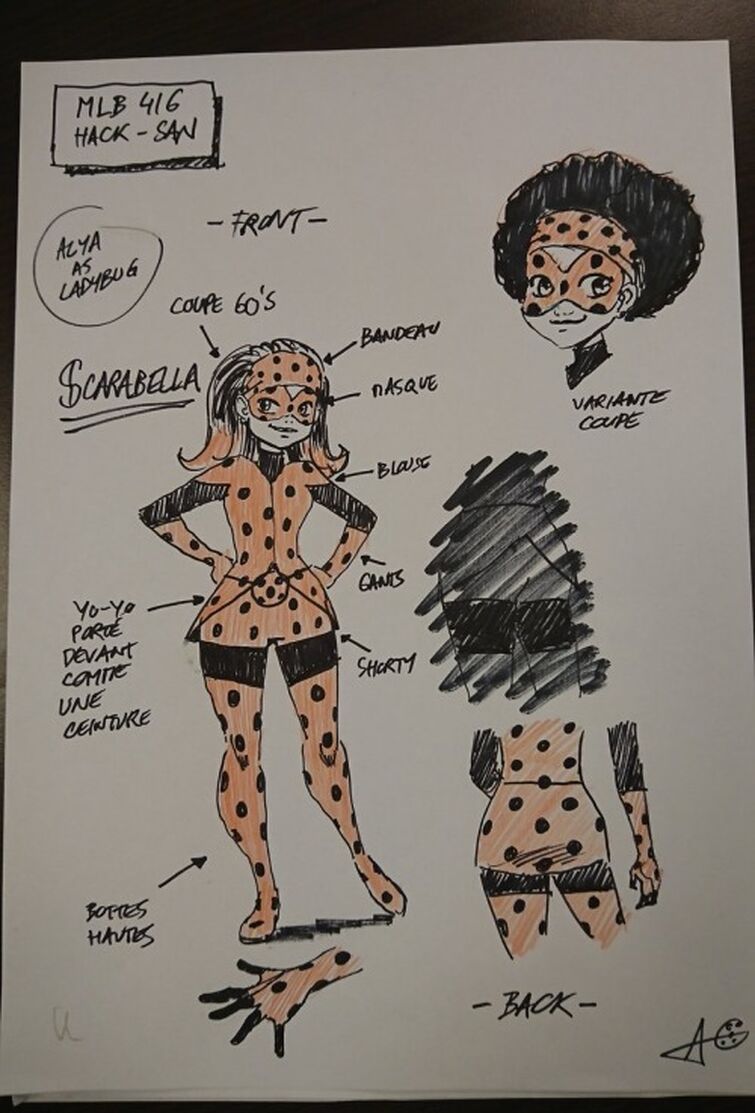 MLB 416
HACK-SAN
-FRONT-
ALYA
AS
LADYBUG
COUPE 60'S
BANDEAU
SCARABELLA
MASQUE
VARIANTE
COUPE
BLOUSE
GANTS
YO-YO
PORTÉ
DEVANT
COMME
UNE
CEINTURE
SHORTY
BOTTES
HAUTES
-BACK-